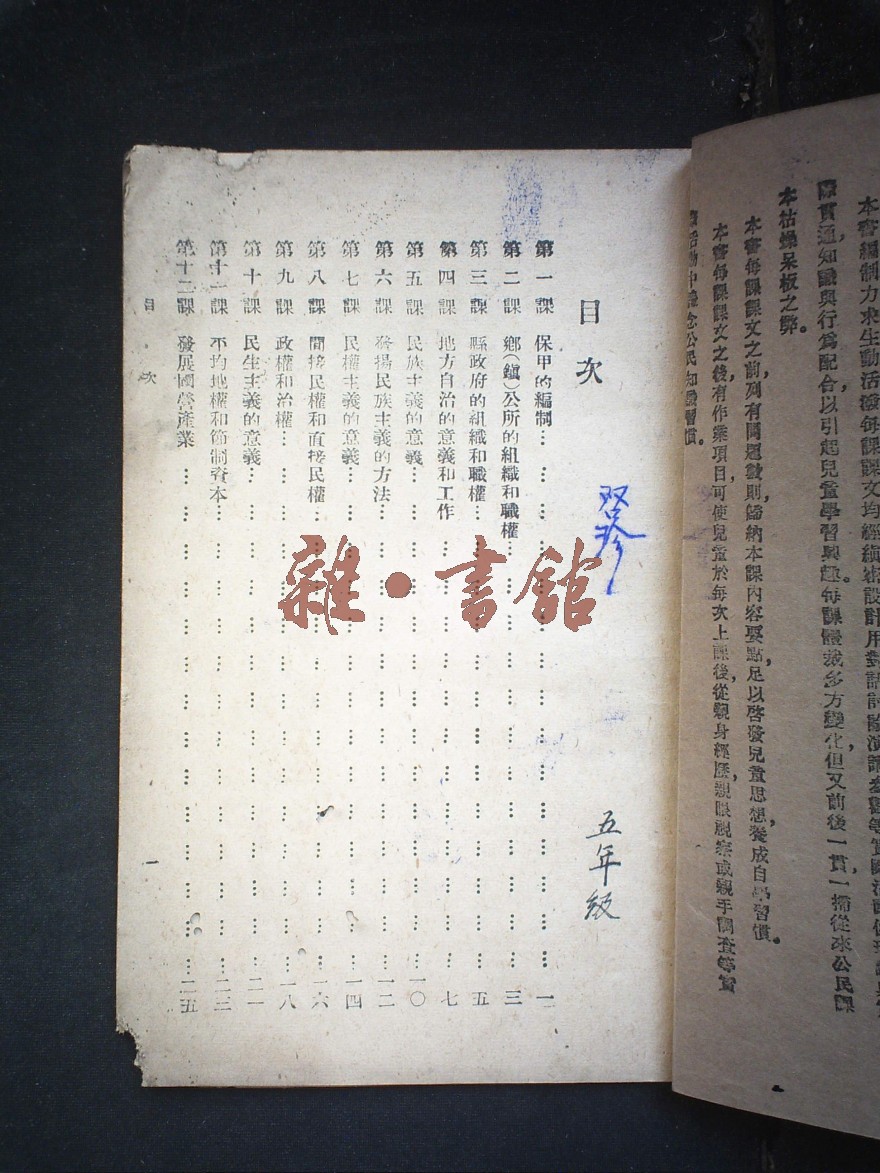 本書編制力求生動活潑每課課文均經縝密設計用對話討論演講
際貫通，知識與行爲配合以引起兒童學習興趣。每課體裁多方變化，但又前後一貫一掃從來公民課
本枯燥呆板之弊。
本書每課課文之前，列有問題數則歸納本課內容要點，足以啓發兒童思想養成自學習慣。
本書每課課文之後，有作業項目，可使兒童於每次上課後，從親身經歷，親眼視察或親手調查等實
公民知識習慣。
目次
双珍
五年級
第一課 保甲的編制……一
第二課 鄉(鎭)公所的組織和職權……三
第三課 縣政府的組織和職權……五
第四課 地方自治的意義和工作……七
第五課 民族主義的意義……一〇
第六課 發揚民族主義的方法……一二
第七課 民權主義的意義……一四
第八課 間接民權和直接民權……一六
第九課 政權和治權……一八
第十課 民生主義的意義……二一
第十一課 平均地權和節制資本……二三
第十二課 發展國營產業……二五
目次
一
雜·書館